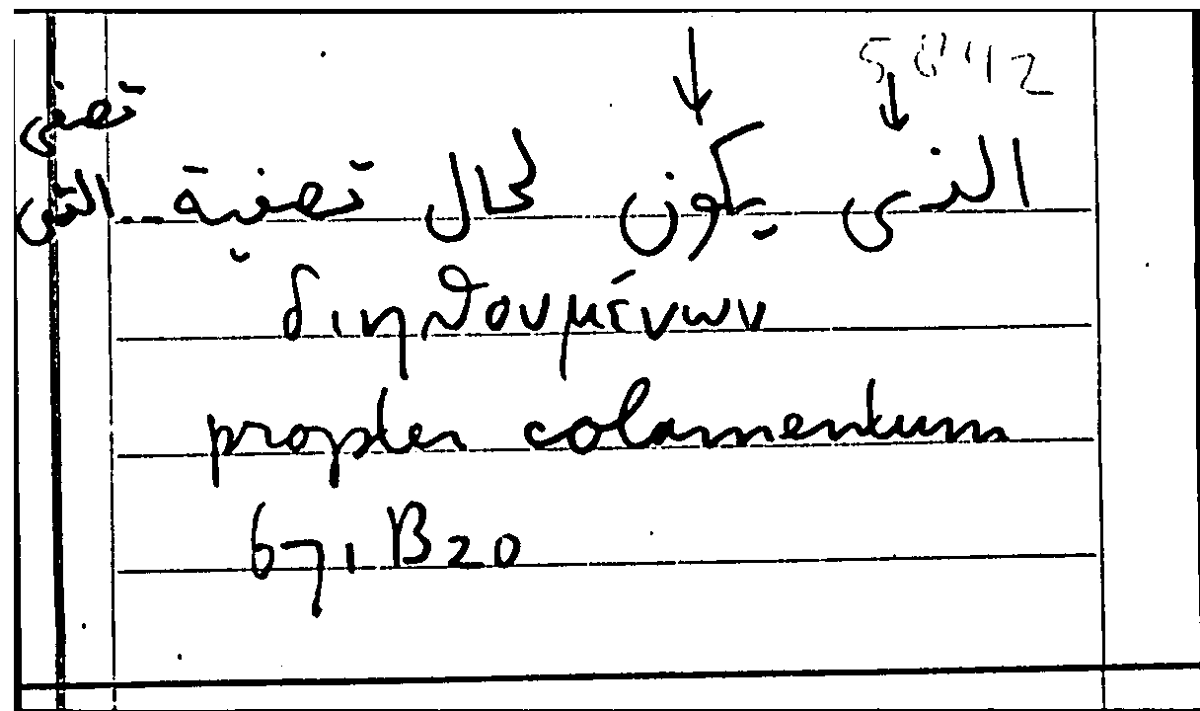 تصفى
الذى يكون لحال تصفية
διηθουμένων
propter colamentum
671 B20